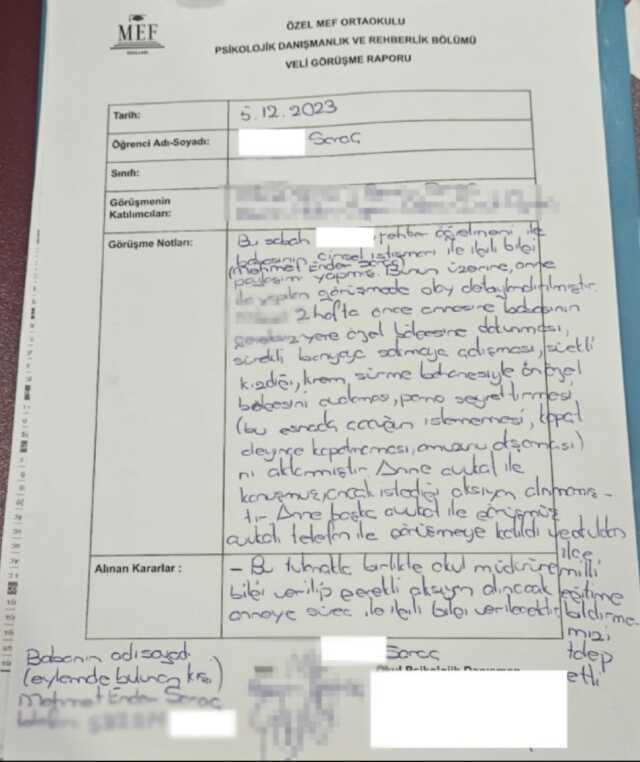 MEF
ÖZEL MEF ORTAOKULU
PSİKOLOJİK DANIŞMANLIK VE REHBERLİK BÖLÜMÜ
VELİ GÖRÜŞME RAPORU
Tarih: 5.12.2023
Öğrenci Adı-Soyadı: Saraç
Sınıfı:
Görüşmenin
Katılımcıları:
Görüşme Notları: Bu sabah , rehber öğretmeni ile
babasının cinsel istismarı ile ilgili bilgi
(Mehmet Ender Saraç)
paylaşımı yapmış. Bunun üzerine, anne
ile yapılan görüşmede olay detaylandırılmıştır.
2 hafta önce annesine babasının
yere özel bölgesine dokunması,
sürekli banyoya sokmaya çalışması, sürekli
kızdığı, krem sürme bahanesiyle ön özel
bölgesini , porno seyrettirmesi
(bu esnada çocuğun istememesi, kapat
deyince kapatmaması, )
nı aktarmıştır. Anne avukat ile
konuşmuş, ancak istediği aksiyon alınmamış-
tır. Anne başka avukat ile
avukatı telefon ile görüşmeye katıldı ve
Alınan Kararlar : - Bu tutanakla birlikte okul müdürüne
bilgi verilip gerekli aksiyon alınacak
anneye süreç ile ilgili bilgi verilecektir.
ilçe
milli
eğitime
bildirme
mizi
talep
etti
Babanın adı soyadı
(eylemde bulunan kişi)
Mehmet Ender Saraç
Saraç
Okul Psikolojik Danışman